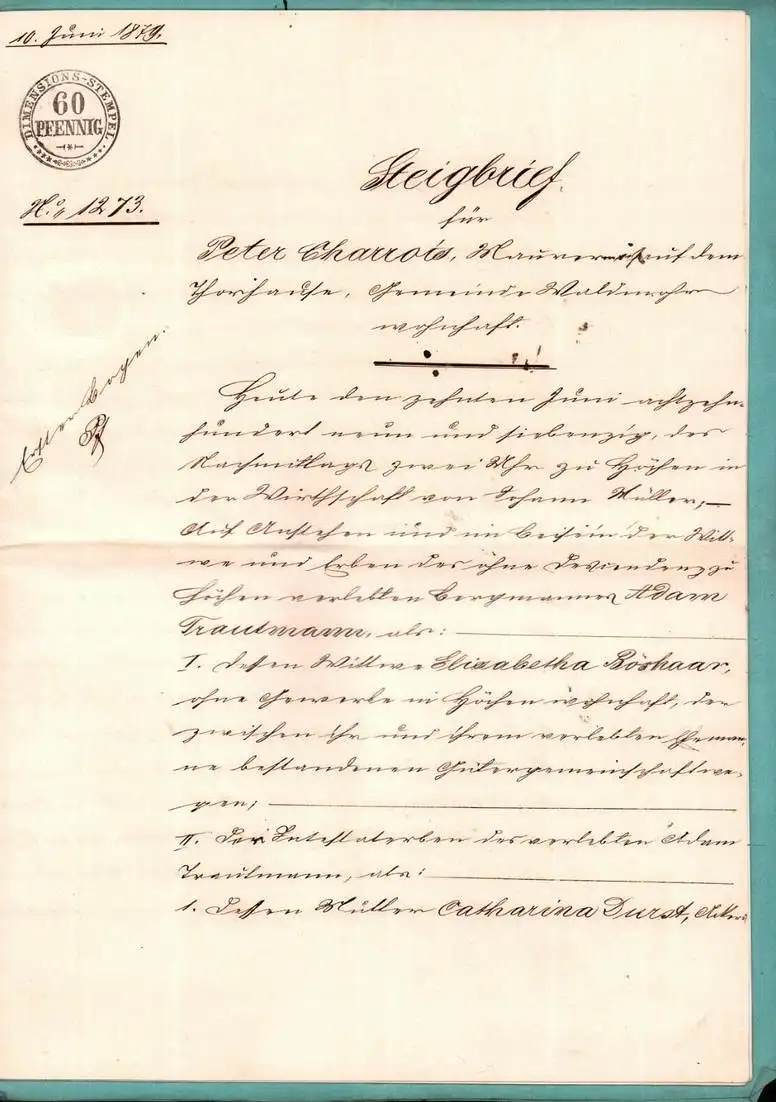 10. Juni 1879.
DIMENSIONS-STEMPEL
60
PFENNIG
No. 1273.
Steigbrief
für
Peter Charrois, Maurer auf dem
Thorhause, Gemeinde Waldmohr
wohnhaft.
Erster Bogen.
Heute den zehnten Juni achtzehn-
hundert neun und siebenzig, des
Nachmittags zwei Uhr zu Höchen in
der Wirthschaft von Johann Müller; —
Auf Anstehen und im Beisein der Witt-
we und Erben des ohne Descendenz zu
Höchen verlebten Bergmannes Adam
Trautmann, als:
I. Dessen Wittwe Elisabetha Böshaar,
ohne Gewerbe in Höchen wohnhaft, der
zwischen ihr und ihrem verlebten Eheman-
ne bestandenen Gütergemeinschaft we-
gen;
II. Der Intestaterben des verlebten Adam
Trautmann, als:
1. Dessen Mutter Catharina Durst, Acker